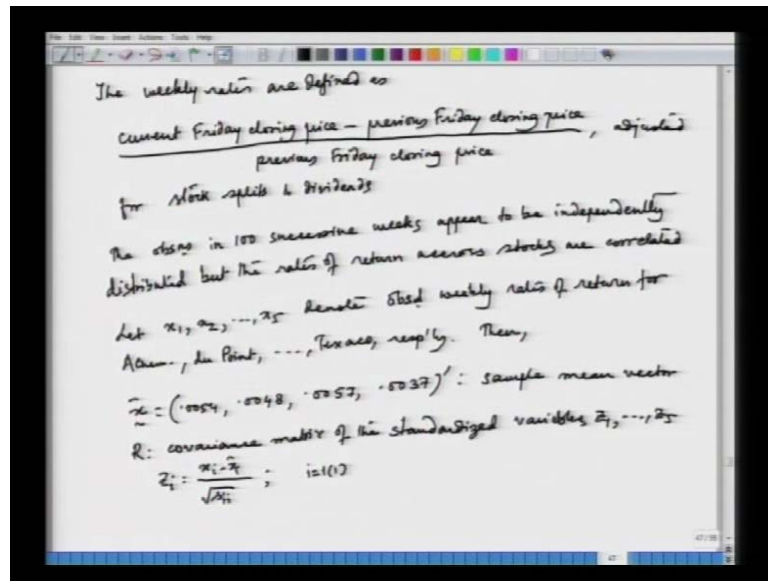 File Edit View Insert Actions Tools Help
The weekly rates are defined as
current Friday closing price – previous Friday closing price , adjusted
previous Friday closing price
for stock splits & dividends
The obsns in 100 successive weeks appear to be independently
distributed but the rates of return accross stocks are correlated
Let x₁, x₂, ..., x₅ denote obsd weekly rates of return for
Du Point, ..., Texaco, resp'ly. Then,
x̄ = (.0054, .0048, .0057, .0037)' : sample mean vector
R: covariance matrix of the standardized variables Z₁, ..., Z₅
Zᵢ = (xᵢ - x̄ᵢ)/√sᵢᵢ ; i=1(1)
47/95
47